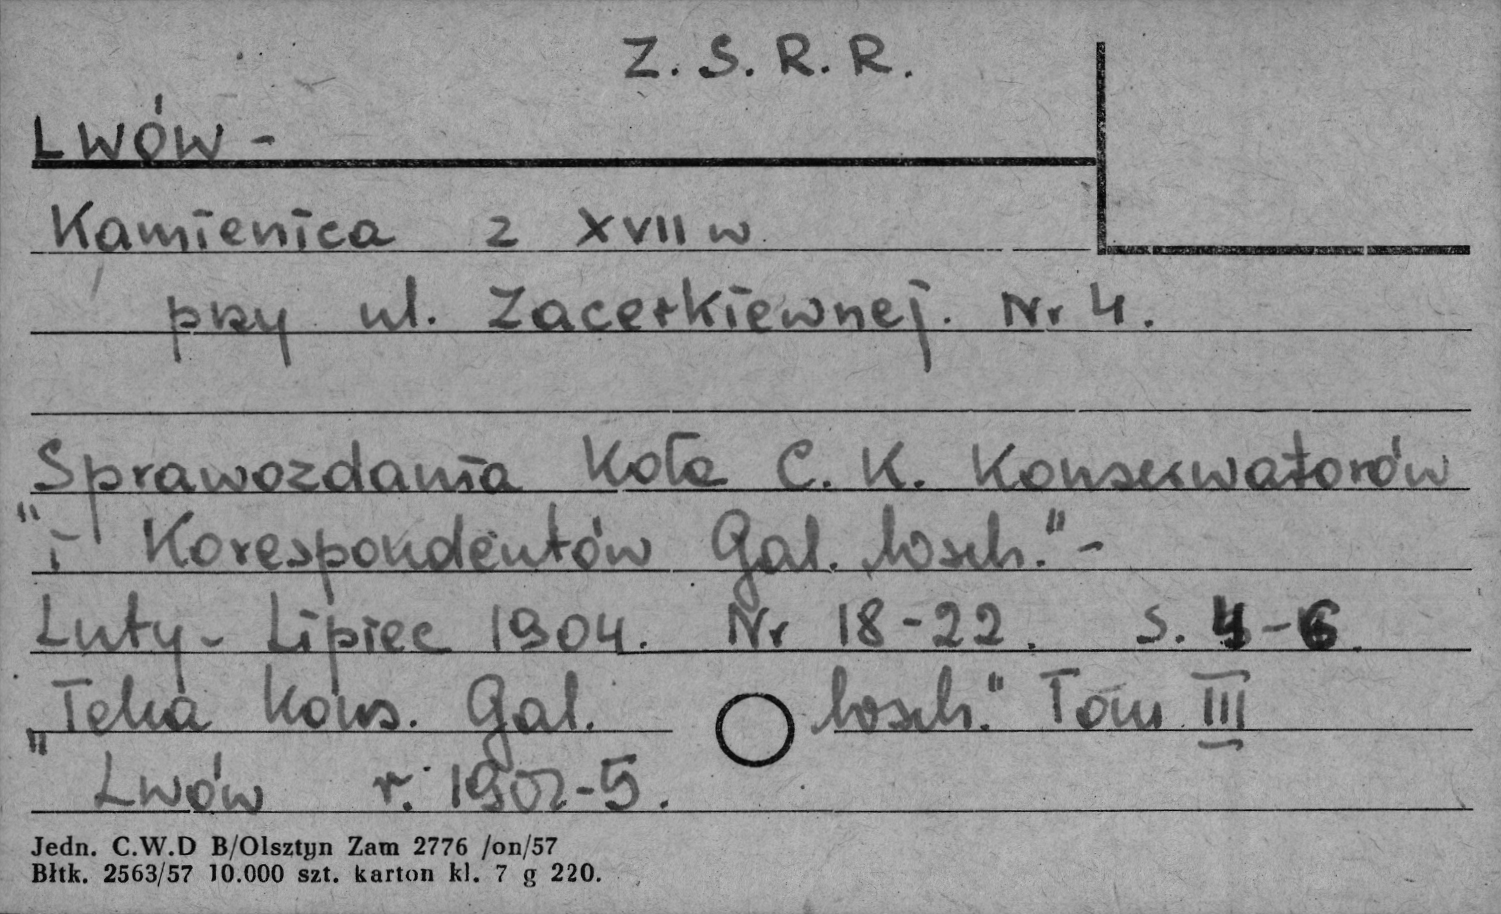 Z. S. R. R.
LWÓW -
Kamienica z XVII w
przy ul. Zacerkiewnej. Nr 4.
Sprawozdania Koła C. K. Konserwatorów
"i Korespondentów Gal. wsch." -
Luty - Lipiec 1904. Nr 18-22. s. 4-6.
"Teka Kons. Gal. wsch." Tom III
Lwów r. 1902-5.
Jedn. C.W.D B/Olsztyn Zam 2776 /on/57
Błtk. 2563/57 10.000 szt. karton kl. 7 g 220.